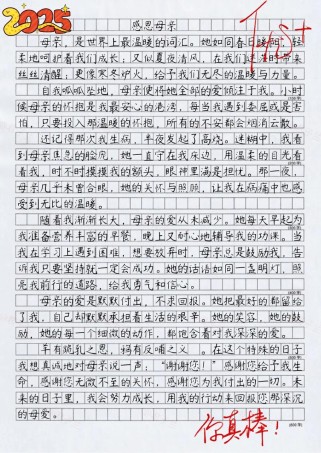 2025
感恩母亲
母亲，是世界上最温暖的词汇。她如同春日暖阳，轻
柔地呵护着我们成长；又似夏夜清风，在我们
丝丝清醒；更像寒冬炉火，给予我们无尽的温暖与力量。
自我呱呱坠地，母亲便将她全部的爱倾注于我。小时
候母亲的怀抱是我最安心的港湾，每当我遇到委屈或是害
怕，只要投入那温暖的怀抱，所有的不安都会烟消云散。
还记得那次我生病，半夜发起了高烧。迷糊中，我看
到母亲焦急的脸庞，她一直守在我床边，用温柔的目光看
着我，时不时摸摸我的额头，眼神里满是担忧。那一夜，
母亲几乎未曾合眼，她的关怀与照顾，让我在病痛中也感
受到无比的温暖。
随着我渐渐长大，母亲的爱从未减少。她每天早起为
我准备营养丰富的早餐，晚上又耐心地辅导我的功课。当
我在学习上遇到困难，想要放弃时，母亲总是鼓励我，告
诉我只要坚持就一定会成功。她的话语如同一盏明灯，照
亮我前行的道路，给我勇气和信心。
母亲的爱是默默付出，不求回报。她把最好的都留给
了我，自己却默默承担着生活的艰辛。她的笑容，她的鼓
励，她的每一个细微的动作，都饱含着对我深深的爱。
羊有跪乳之恩，鸦有反哺之义。在这个特殊的日子
我想真诚地对母亲说一声：“谢谢您！”感谢您给予我生
命，感谢您无微不至的关怀，感谢您为我付出的一切。未
来的日子里，我会努力成长，用我的行动来回报您那深沉
的母爱。
你真棒！